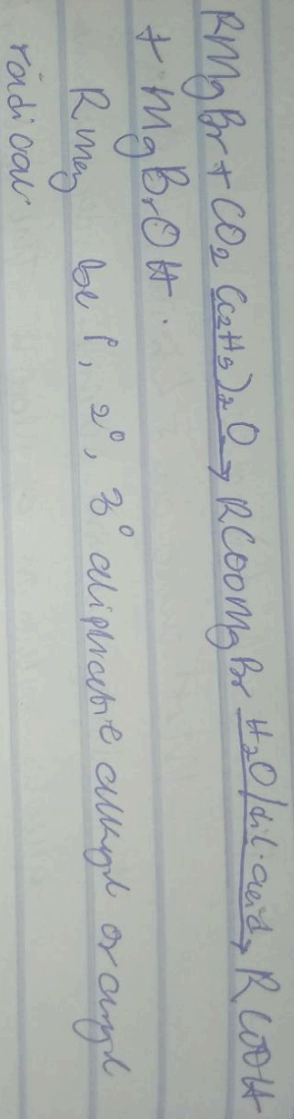 RMgBr + CO2 (C2H5)2O→ RCOOMgBr H2O/dil. acid→ RCOOH
+ MgBrOH.
R may be 1°, 2°, 3° aliphatic alkyl or aryl
radical